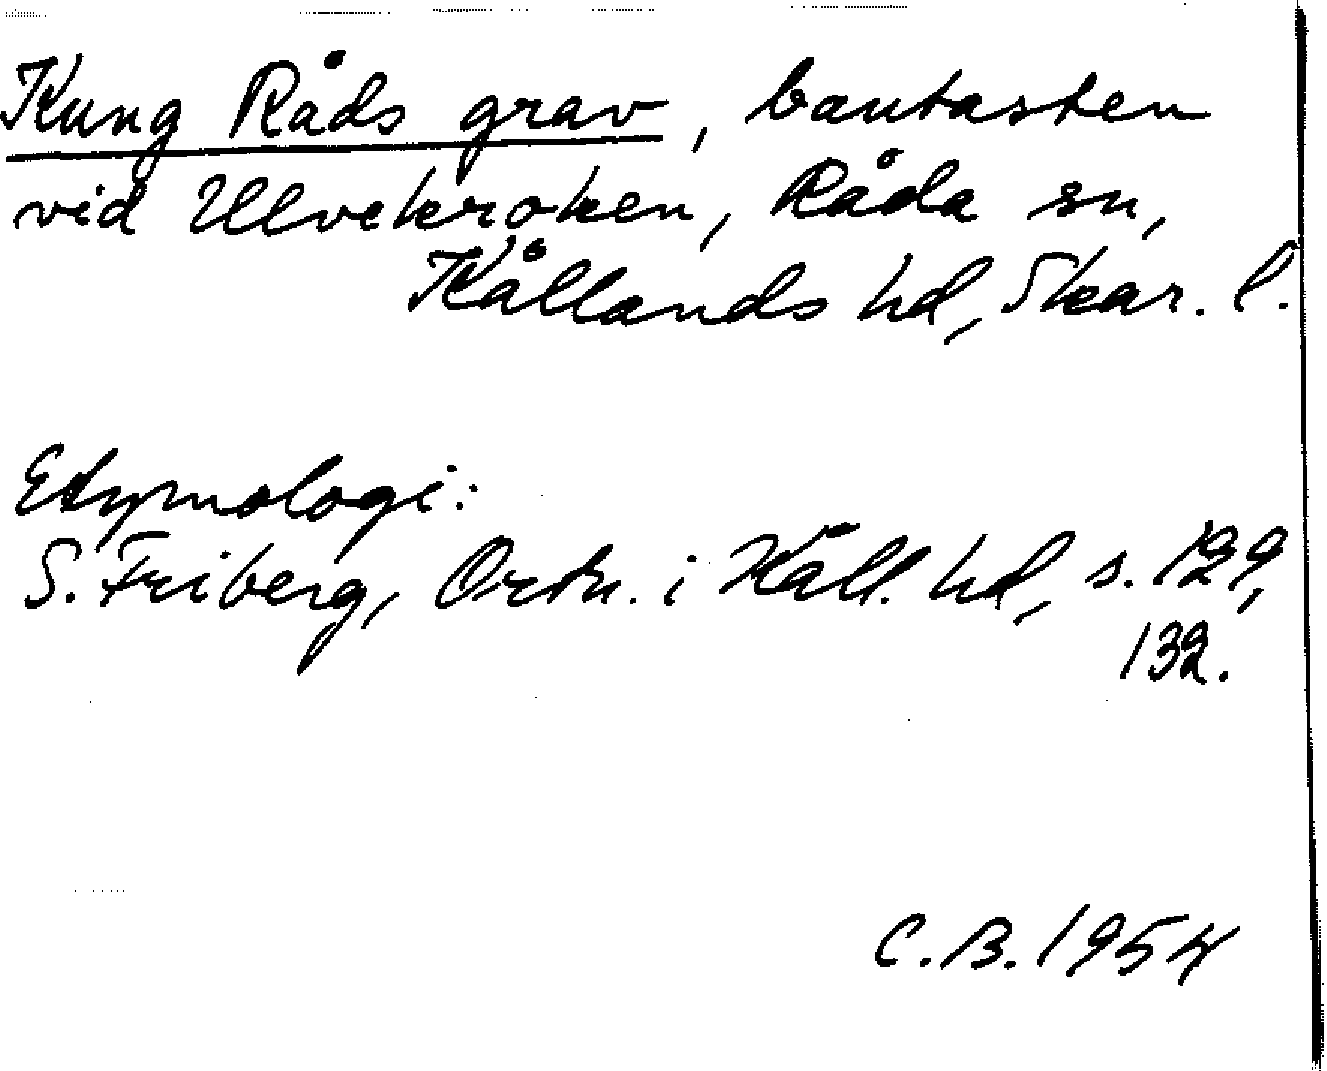 Kung Råds grav, bautasten
vid Ulvekroken, Råda sn,
Kållands hd, Skar. l.
Etymologi:
S. Friberg, Ortn. i Kåll. hd, s. 129,
132.
C.B. 1954